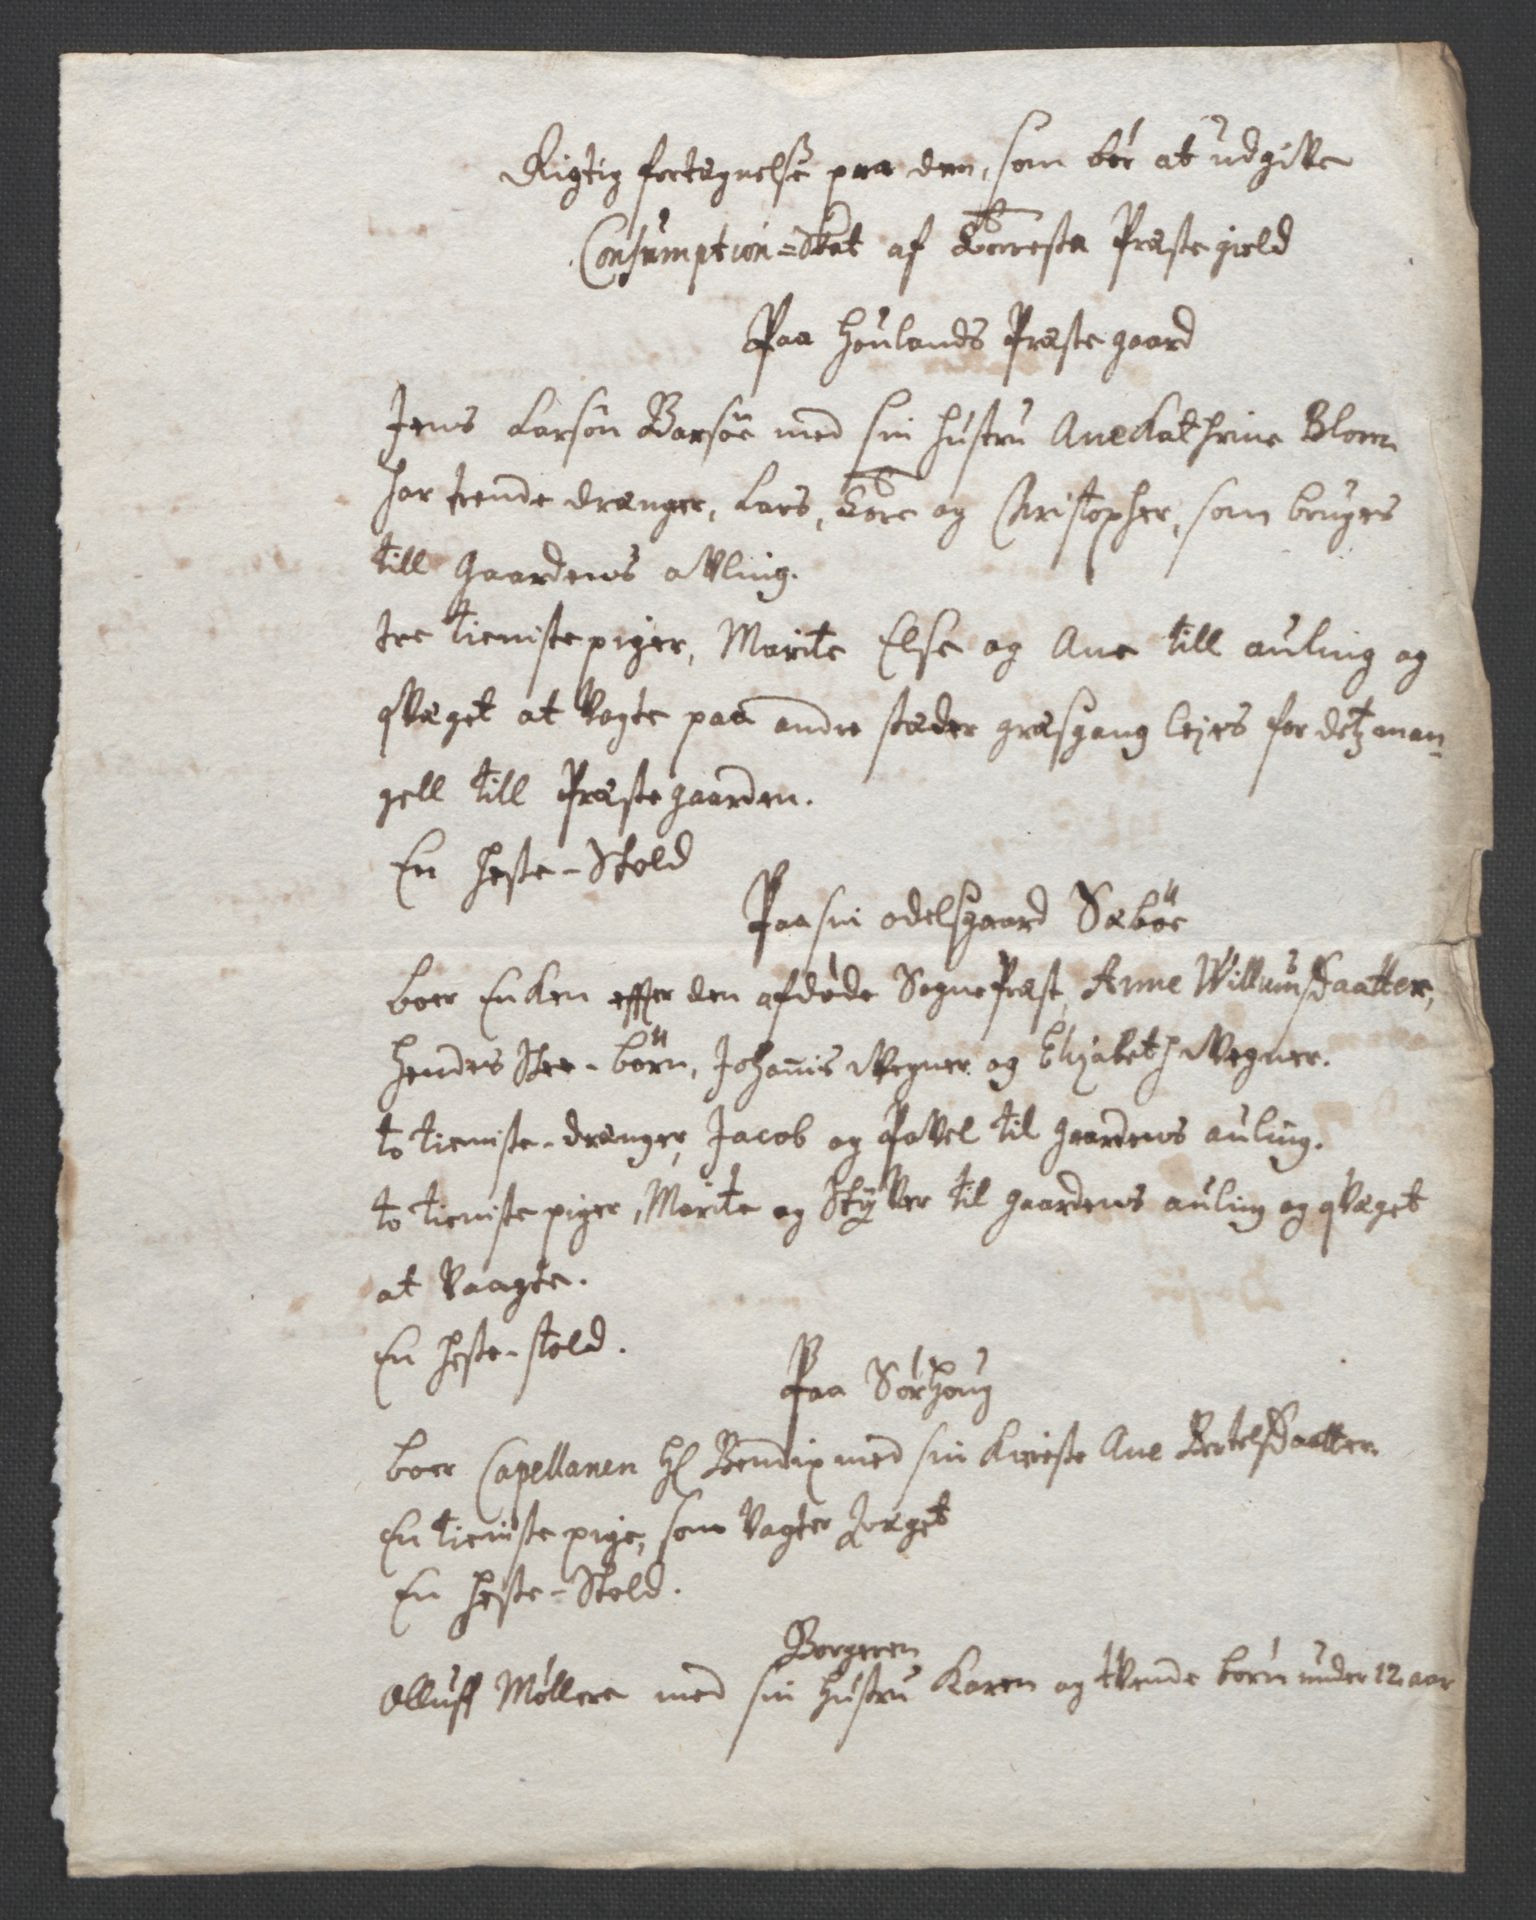 Rigtig fortægnelse paa dem, som bör at udgiVe
Consumption=Skat af Torresta Præstegield
Paa Houlands Præstegaard
Jens Larsön Barsöe med sin hustru AneKathrine Blom
har trende drænger, Lars, Tore og Christopher, som bruges
till Gaardens aVling.
tre tienistepiger, Marite Else og Ane till auling og
qVæget at Vogte paa andre stæder græsgang lejes for detz man-
gell till Præstegaarden.
En heste-Stold
Paa sin odelsgaard Sæböe
boer Enken effter den afdøde SognePræst, Anne Willumsdaatter,
hendes Stee-börn, Johannis Wegner og Elizabeth Wegner.
to tieniste-drænger, Jacob og PaVel til gaardens auling.
to tienistepiger, Marite og StyVer til gaardens auling og qVæget
at Vaagte.
En heste-stold.
Paa Sörhoug
boer Capellanen Hl Bendix med sin Kiereste Ane Bertelsdaatter
En tienistepige, som Vagter Qvæget
En heste-Stold.
Borgeren
Olluff Møllere med sin hustru Karen og tVende börn under 12 aar